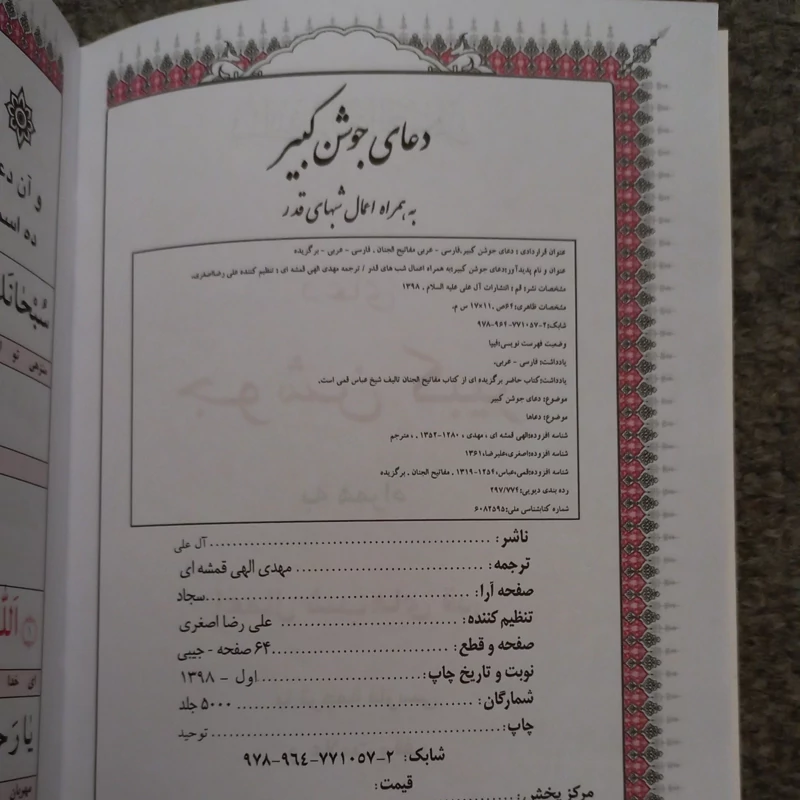 دعای جوشن کبیر
به همراه اعمال شبهای قدر
عنوان قراردادی : دعای جوشن کبیر.فارسی - عربی مفاتیح الجنان . فارسی - عربی - برگزیده
عنوان و نام پدیدآور:دعای جوشن کبیر:به همراه اعمال شب های قدر / ترجمه مهدی الهی قمشه ای ؛ تنظیم کننده علی رضااصغری.
مشخصات نشر: قم : انتشارات آل علی علیه السلام ، ۱۳۹۸
مشخصات ظاهری:۶۴ص ؛ ۱۱×۱۷ س م.
شابک:۲-۰۵۷-۷۷۱-۹۶۴-۹۷۸
وضعیت فهرست نویسی:فیپا
یادداشت: فارسی - عربی.
یادداشت:کتاب حاضر برگزیده ای از کتاب مفاتیح الجنان تالیف شیخ عباس قمی است.
موضوع: دعای جوشن کبیر
موضوع: دعاها
شناسه افزوده:الهی قمشه ای ، مهدی ، ۱۲۸۰-۱۳۵۲ . ، مترجم
شناسه افزوده:اصغری،علیرضا،۱۳۶۱
شناسه افزوده:قمی،عباس،۱۲۵۴-۱۳۱۹ . مفاتیح الجنان . برگزیده
رده بندی دیویی:۲۹۷/۷۷۴
شماره کتابشناسی ملی:۶۰۸۲۵۹۵
ناشر: آل علی
ترجمه: مهدی الهی قمشه ای
صفحه آرا: سجاد
تنظیم کننده: علی رضا اصغری
صفحه و قطع: ۶۴ صفحه - جیبی
نوبت و تاریخ چاپ: اول - ۱۳۹۸
شمارگان: ۵۰۰۰ جلد
چاپ: توحید
شابک: ۲-۰۵۷-۷۷۱-۹۶۴-۹۷۸
قیمت:
مرکز پخش:
و آن دع
سبحانک
تو
ای خدا
مهربان